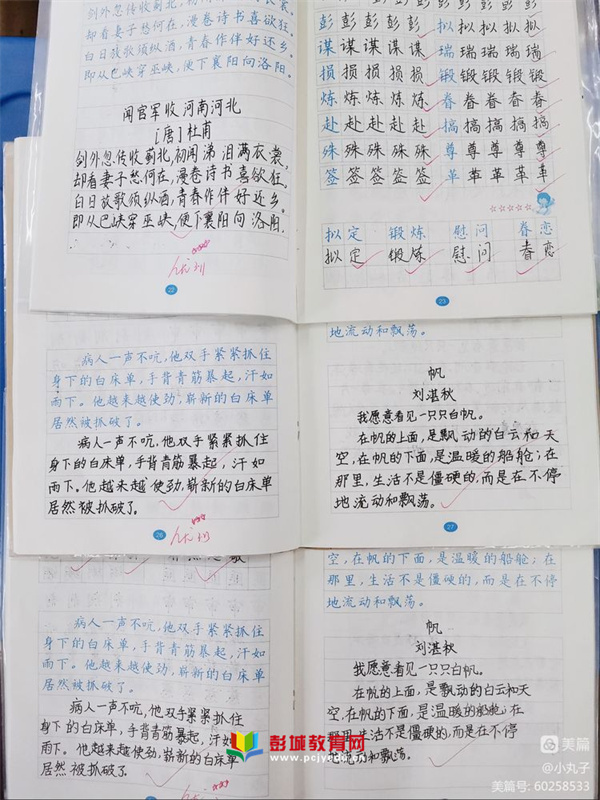 剑外忽传收蓟北,初闻涕泪满衣裳。
却看妻子愁何在,漫卷诗书喜欲狂。
白日放歌须纵酒,青春作伴好还乡。
即从巴峡穿巫峡,便下襄阳向洛阳。
闻官军收河南河北
[唐]杜甫
剑外忽传收蓟北,初闻涕泪满衣裳,
却看妻子愁何在,漫卷诗书喜欲狂。
白日放歌须纵酒,青春作伴好还乡。
即从巴峡穿巫峡,便下襄阳向洛阳。
22
彭彭彭彭彭
谋谋谋谋谋
损损损损损
炼炼炼炼炼
赴赴赴赴赴
殊殊殊殊殊
签签签签签
拟拟拟拟拟
瑞瑞瑞瑞瑞
锻锻锻锻锻
眷眷眷眷眷
搞搞搞搞搞
尊尊尊尊尊
革革革革革
拟定 锻炼 慰问 眷恋
拟定 锻炼 慰问 眷恋
23
病人一声不吭,他双手紧紧抓住
身下的白床单,手背青筋暴起,汗如
雨下。他越来越使劲,崭新的白床单
居然被抓破了。
病人一声不吭,他双手紧紧抓住
身下的白床单,手背青筋暴起,汗如
雨下。他越来越使劲,崭新的白床单
居然被抓破了。
26
地流动和飘荡。
帆
刘湛秋
我愿意看见一只只白帆。
在帆的上面,是飘动的白云和天
空,在帆的下面,是温暖的船舱;在
那里,生活不是僵硬的,而是在不停
地流动和飘荡。
27
病人一声不吭,他双手紧紧抓住
身下的白床单,手背青筋暴起,汗如
雨下。他越来越使劲,崭新的白床单
居然被抓破了。
病人一声不吭,他双手紧紧抓住
身下的白床单,手背青筋暴起,汗如
雨下。他越来越使劲,崭新的白床单
居然被抓破了
空,在帆的下面,是温暖的船舱;在
那里,生活不是僵硬的,而是在不停
地流动和飘荡。
帆
刘湛秋
我愿意看见一只只白帆。
在帆的上面,是飘动的白云和天
空,在帆的下面,是温暖的船舱;在
那里生活不是僵硬的,而是在不停
地流动和飘荡。
彭城教育网
www.pcjyedu.cn
美篇
@小丸子
美篇号: 60258533